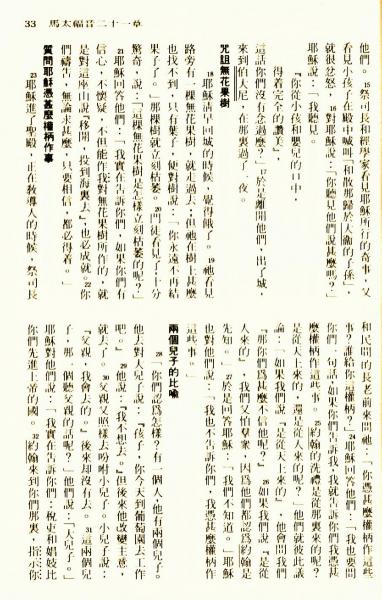 33　馬太福音二十一章
他們。15祭司長和經學家看見耶穌所行的奇事，又
看見小孩子在殿中喊叫「和散那歸於大衛的子孫」，
就很忿怒，16對耶穌說：「你聽見他們說甚麼嗎？」
耶穌說：「我聽見。
『你從小孩和嬰兒的口中，
得着完全的讚美』，
這話你們沒有念過麼？」17於是離開他們，出了城，
來到伯大尼，在那裏過了一夜。
咒詛無花果樹
18耶穌清早回城的時候，覺得餓了。19祂看見
路旁有一棵無花果樹，就走過去；但祂在樹上甚麼
也找不到，只有葉子，便對樹說：「你永遠不再結
果子了。」那棵樹就立刻枯萎。20門徒看見了十分
驚奇，說：「這棵無花果樹是怎樣立刻枯萎的呢？」
21耶穌回答他們：「我實在告訴你們，如果你們有
信心，不懷疑，不但能作我對無花果樹所作的，就
是對這座山說『移開，投到海裏去』，也必成就。22你
們禱告，無論求甚麼，只要相信，都必得着。」
質問耶穌憑甚麼權柄作事
23耶穌進了聖殿，正在教導人的時候，祭司長
和民間的長老前來問祂：「你憑甚麼權柄作這些
事？誰給你這權柄？」24耶穌回答他們：「我也要問
你們一句話，如果你們告訴我，我就告訴你們我憑甚
麼權柄作這些事。25約翰的洗禮是從那裏來的呢？
是從天上來的，還是從人來的呢？」他們就彼此議
論：「如果我們說『是從天上來的』，他會問我們
『那你們爲甚麼不信他呢？』26如果我們說『是從
人來的』，我們又怕羣衆，因爲他們都認爲約翰是
先知。」27於是回答耶穌：「我們不知道。」耶穌
也對他們說：「我也不告訴你們，我憑甚麼權柄作
這些事。」
兩個兒子的比喻
28「你們認爲怎樣？有一個人，他有兩個兒子。
他去對大兒子說：『孩子，你今天到葡萄園去工作
吧。』29他說：『我不想去。』但後來他改變主意，
就去了。30父親又照樣去吩咐小兒子。小兒子說：
『父親，我會去的。』後來却沒有去。31這兩個兒
子，那一個聽父親的話呢？」他們說：「大兒子。」
耶穌對他們說：「我實在告訴你們，稅吏和娼妓比
你們先進上帝的國。32約翰來到你們那裏，指示你